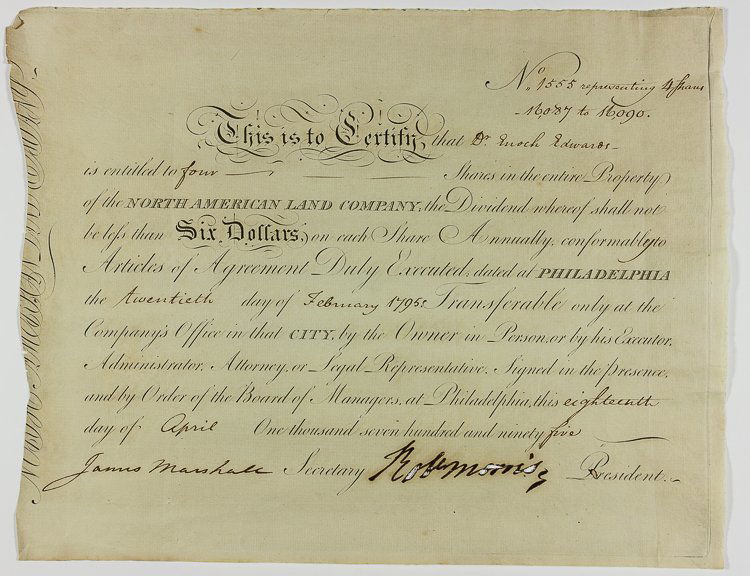 No. 1555 representing 4 shares
- 16087 to 16,090.
This is to Certify, that Dr. Enoch Edwards
is entitled to four Shares in the entire Property
of the NORTH AMERICAN LAND COMPANY, the Dividend whereof shall not
be less than Six Dollars, on each Share Annually, conformably to
Articles of Agreement Duly Executed, dated at PHILADELPHIA
the twentieth day of February 1795: Transferable only at the
Company's Office in that CITY, by the Owner in Person, or by his Executor,
Administrator, Attorney, or Legal Representative. Signed in the presence,
and by Order of the Board of Managers, at Philadelphia, this eighteenth
day of April One thousand seven hundred and ninety five
James Marshall Secretary Rob Morris President.